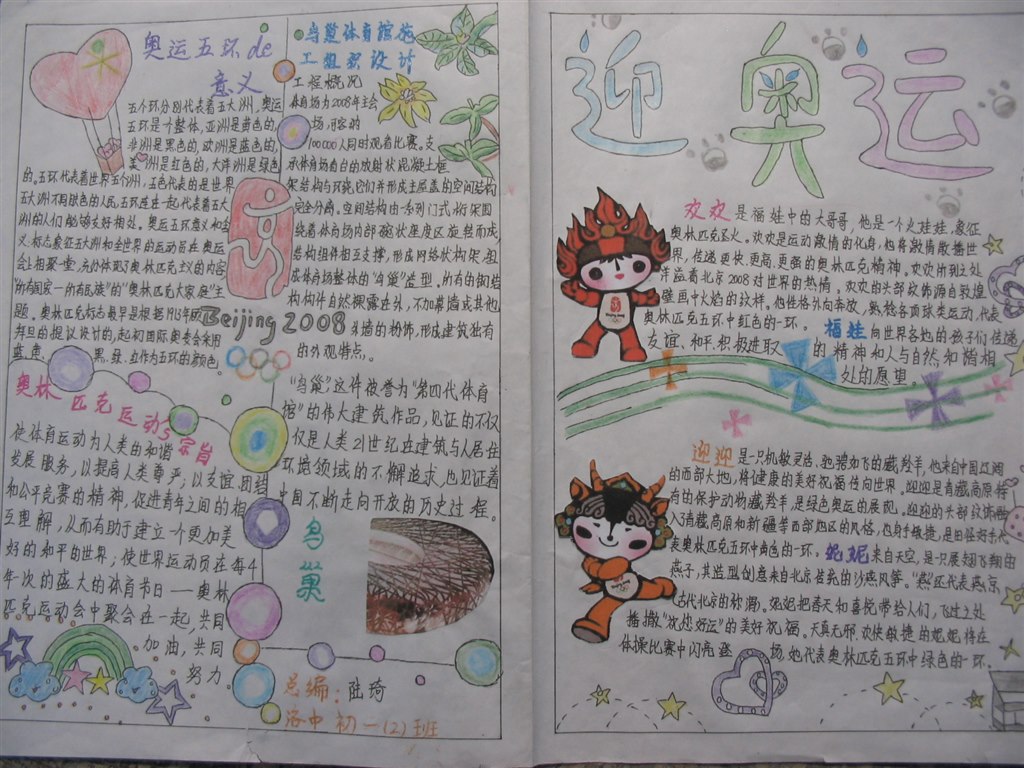 奥运五环de
意义
五个环分别代表着五大洲,奥运
五环是个整体,亚洲是黄色的,
非洲是黑色的,欧洲是蓝色的,
美洲是红色的,大洋洲是绿色
的。五环代表着世界五个洲,五色代表的是世界
五大洲不同肤色的人民,五环连在一起代表着五大
洲的人们能够友好相处。奥运五环意义和
义:标志象征五大洲和全世界的运动员在奥运
会上相聚一堂,充分体现了奥林匹克主义的内容
"所有国家—所有民族"的"奥林匹克大家庭"主
题。奥林匹克标志最早是根据1913年顾
拜旦的提议设计的,起初国际奥委会采用
蓝、黄、黑、绿、红作为五环的颜色。
Beijing 2008
奥林匹克运动
宗旨
使体育运动为人类的和谐
发展服务,以提高人类尊严;以友谊,团结
和公平竞赛的精神,促进青年之间的相
互理解,从而有助于建立一个更加美
好的和平的世界;使世界运动员在每4
年一次的盛大的体育节日——奥林
匹克运动会中聚会在一起,共同
加油,共同
努力。
鸟巢体育馆施
工组织设计
工程概况
体育场为2008年主会
场,可容纳
100000人同时观看比赛。支
承体育场看台的放射状混凝土框
架结构与环绕它们并形成主屋盖的空间结构
完全分离。空间结构由一系列门式桁架围
绕着体育场内部碗状座席区旋转而成,
结构组件相互支撑,形成网络状构架,组
成体育场整体的"鸟巢"造型。所有的钢结
构构件自然裸露在外,不加幕墙或其他
外墙的粉饰,形成建筑独有
的外观特点。
"鸟巢"这件被誉为"第四代体育
馆"的伟大建筑作品,见证的不仅
仅是人类21世纪在建筑与人居住
环境领域的不懈追求,也见证着
中国不断走向开放的历史过程。
鸟
巢
总编:陆琦
洛中初一(2)班
迎奥运
欢欢是福娃中的大哥哥,他是一个火娃娃,象征
奥林匹克圣火。欢欢是运动激情的化身,他将激情散播世
界,传递更快、更高、更强的奥林匹克精神。欢欢所到之处
洋溢着北京2008对世界的热情。欢欢的头部纹饰源自敦煌
壁画中火焰的纹样。他性格外向奔放,熟稔各项球类运动,代表
奥林匹克五环中红色的一环。福娃向世界各地的孩子们传递
友谊、和平、积极进取的精神和人与自然和谐相
处的愿望。
迎迎是一只机敏灵活、驰骋如飞的藏羚羊,他来自中国辽阔
的西部大地,将健康的美好祝福传向世界。迎迎是青藏高原特
有的保护动物藏羚羊,是绿色奥运的展现。迎迎的头部纹饰融
入了青藏高原和新疆等西部地区的风格,他身手敏捷,是田径好手,代
表奥林匹克五环中黄色的一环。妮妮来自天空,是一只展翅飞翔的
燕子,其造型创意来自北京传统的沙燕风筝。"燕"还代表燕京,
(古代北京的称谓)。妮妮把春天和喜悦带给人们,飞过之处
播撒"祝您好运"的美好祝福。天真无邪、欢快敏捷的妮妮将在
体操比赛中闪亮登场,她代表奥林匹克五环中绿色的一环.